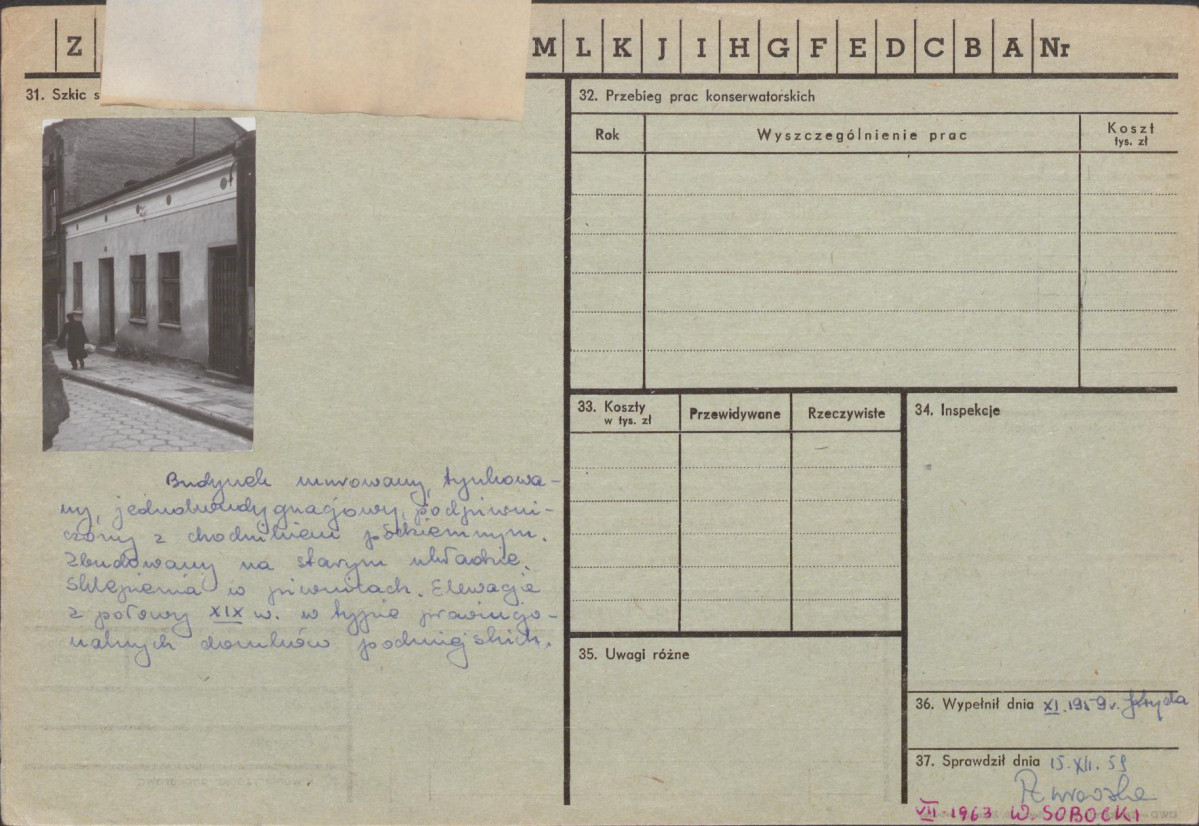 Z M L K J I H G F E D C B A Nr
31. Szkic s
32. Przebieg prac konserwatorskich
Rok Wyszczególnienie prac Koszt
tys. zł
Budynek murowany, tynkowa-
ny, jednokondygnacjowy, podpiwni-
czony z chodnikiem podziemnym.
Zbudowany na starym układzie.
Sklepienia w piwnicach. Elewacje
z połowy XIX w. w typie prowincjo-
nalnych domków podmiejskich.
33. Koszty
w tys. zł
Przewidywane Rzeczywiste
34. Inspekcje
35. Uwagi różne
36. Wypełnił dnia XI. 1959 r.
37. Sprawdził dnia 15. XII. 59
VII 1963 W. SOBOCKI